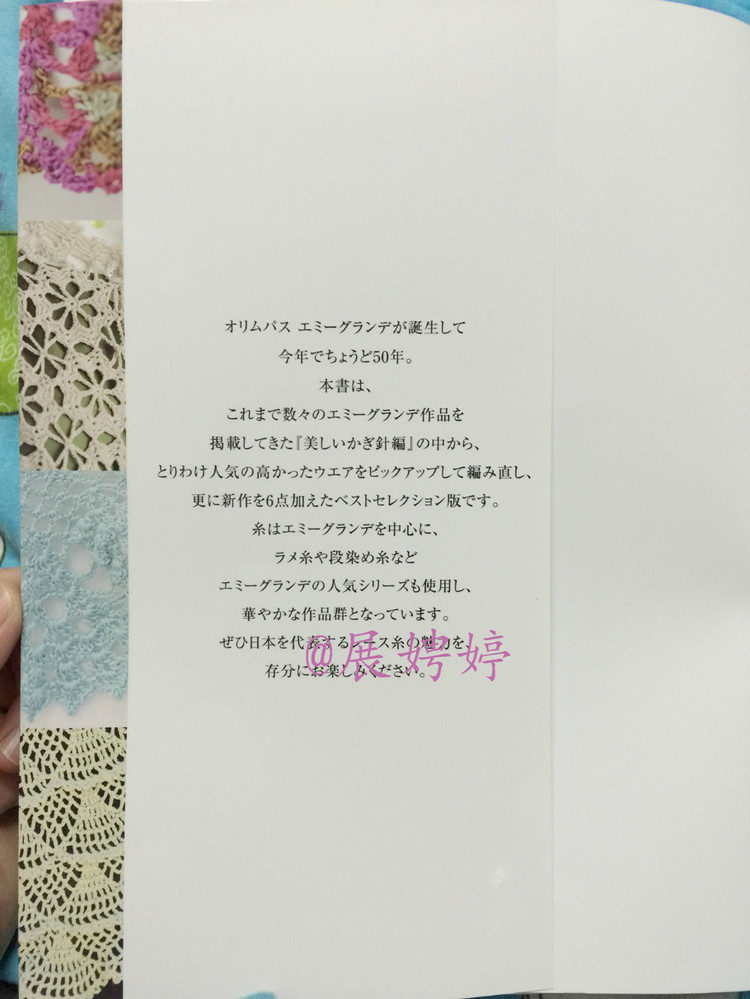 オリムパス エミーグランデが誕生して
今年でちょうど50年。
本書は、
これまで数々のエミーグランデ作品を
掲載してきた『美しいかぎ針編』の中から、
とりわけ人気の高かったウエアをピックアップして編み直し、
更に新作を6点加えたベストセレクション版です。
糸はエミーグランデを中心に、
ラメ糸や段染め糸など
エミーグランデの人気シリーズも使用し、
華やかな作品群となっています。
ぜひ日本を代表するレース糸の魅力を、
@展娉婷
存分にお楽しみください。